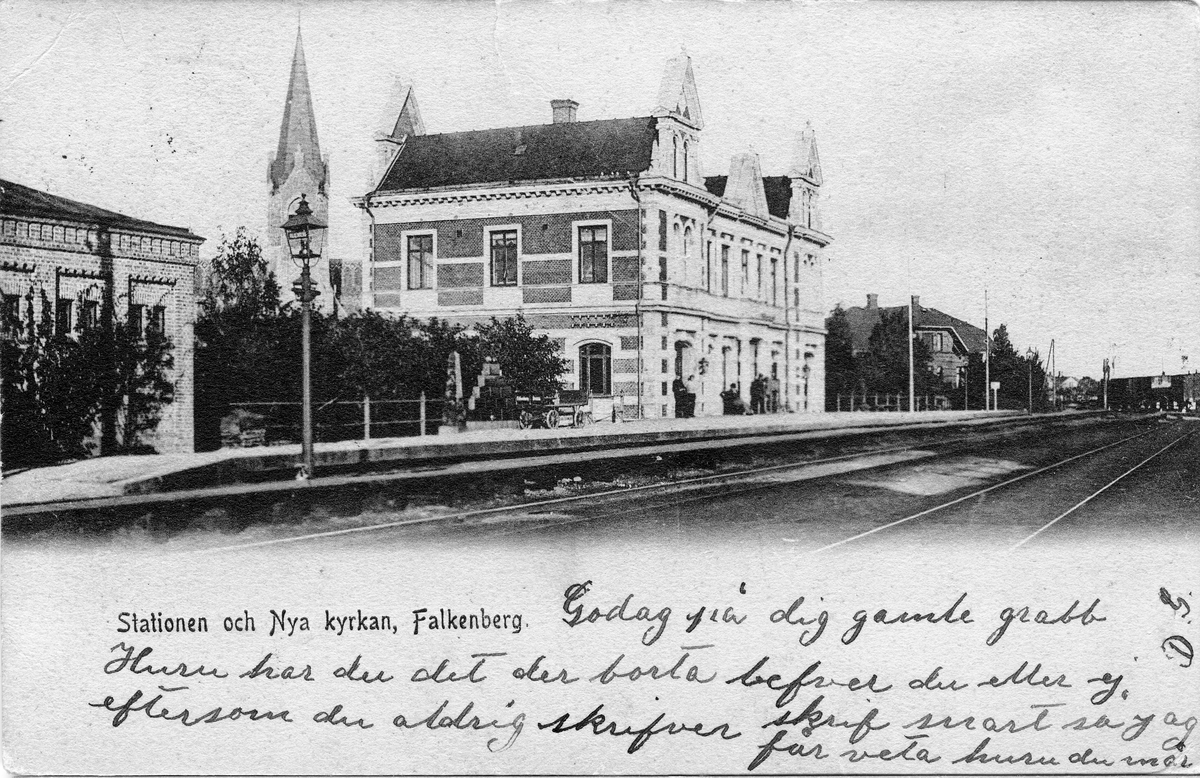 Stationen och Nya kyrkan, Falkenberg.
Godag på dig gamle grabb
Huru har du det der borta befver du eller ej,
eftersom du aldrig skrifver skrif snart så jag
får veta huru du mår
D G.